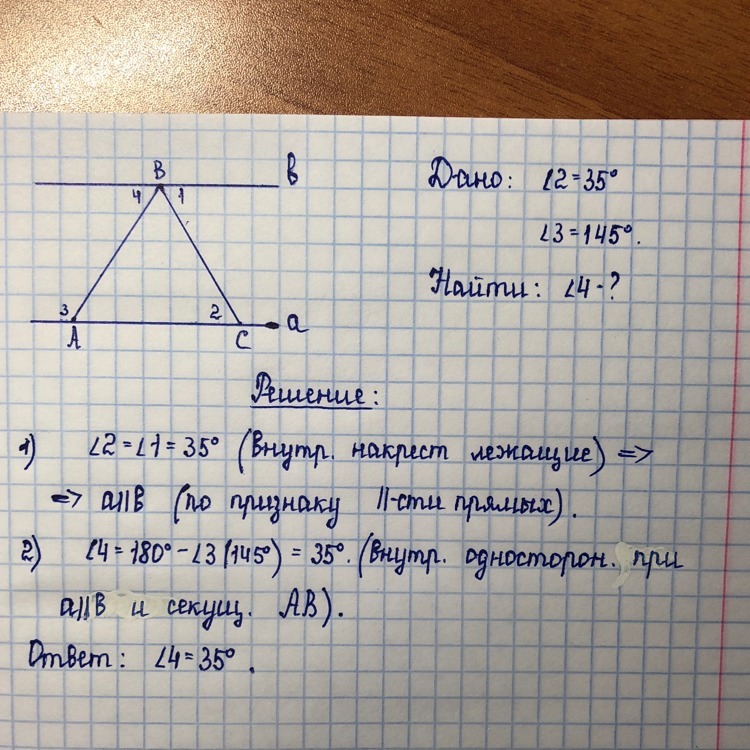 B
b
4 1
3 2
A C a
Дано: ∠2=35°
∠3=145°.
Найти: ∠4-?
Решение:
1) ∠2=∠1=35° (внутр. накрест лежащие) =>
=> a||b (по признаку ||-сти прямых).
2) ∠4=180°-∠3(145°)=35°. (внутр. односторон., при
a||b и секущ. AB).
Ответ: ∠4=35°.